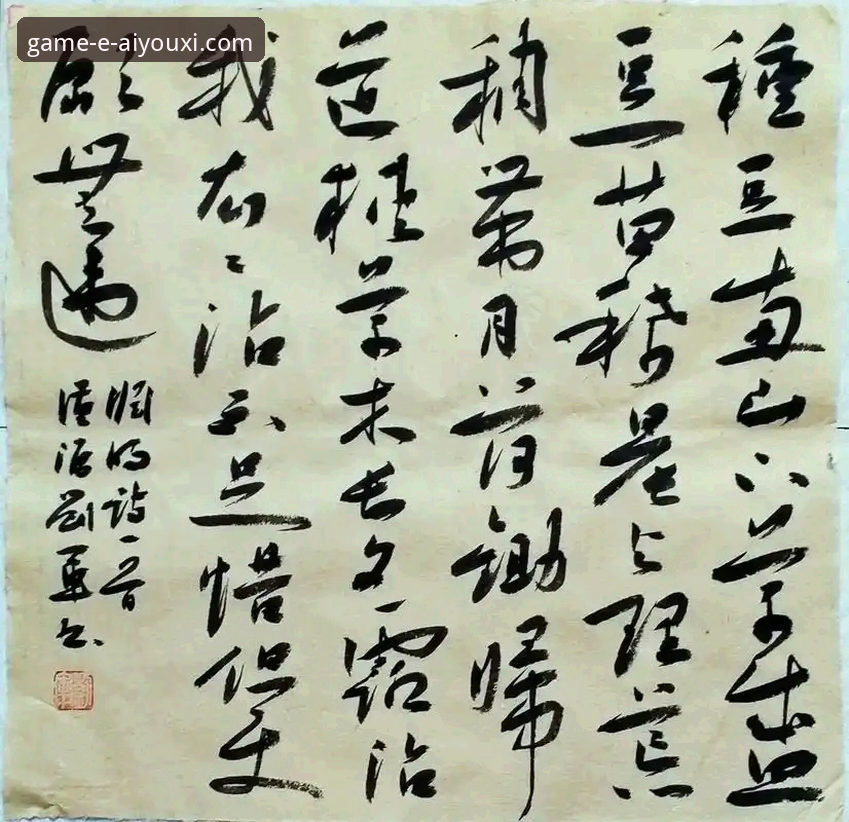 game-e-aiyouxi.com
種豆南山下草盛
豆苗稀晨興理荒
穢帶月荷鋤歸
道草木長夕露沾
我衣衣沾不足惜但使
願無違
淵明詩一首
劉書